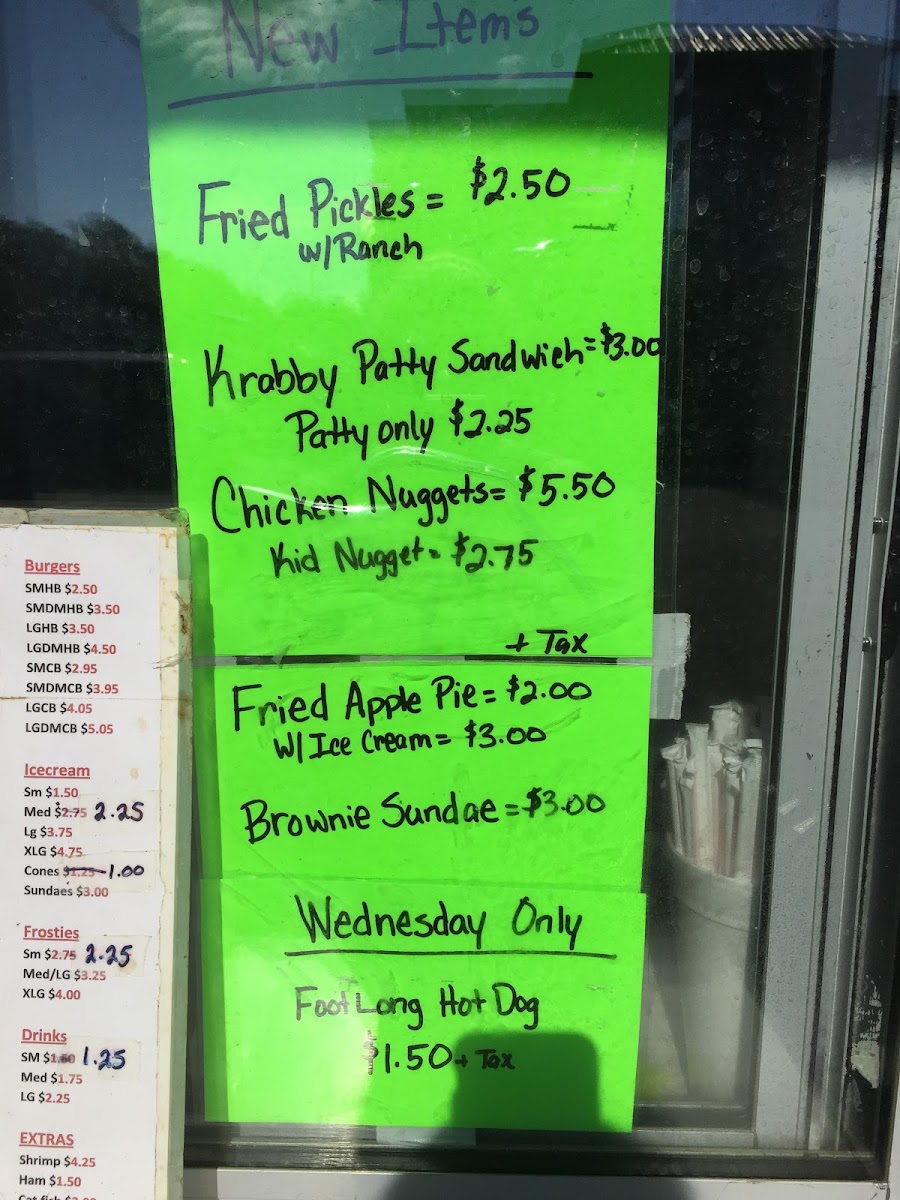 New Items
Fried Pickles = $2.50
w/Ranch
Krabby Patty Sandwich = $3.00
Patty only $2.25
Chicken Nuggets = $5.50
Kid Nugget = $2.75
+ Tax
Fried Apple Pie = $2.00
W/ Ice Cream = $3.00
Brownie Sundae = $3.00
Wednesday Only
Foot Long Hot Dog
$1.50 + Tax
Burgers
SMHB $2.50
SMDMHB $3.50
LGHB $3.50
LGDMHB $4.50
SMCB $2.95
SMDMCB $3.95
LGCB $4.05
LGDMCB $5.05
Icecream
Sm $1.50
Med $2.75 2.25
Lg $3.75
XLG $4.75
Cones $1.25 1.00
Sundaes $3.00
Frosties
Sm $2.75 2.25
Med/LG $3.25
XLG $4.00
Drinks
SM $1.50 1.25
Med $1.75
LG $2.25
EXTRAS
Shrimp $4.25
Ham $1.50
Cat fish